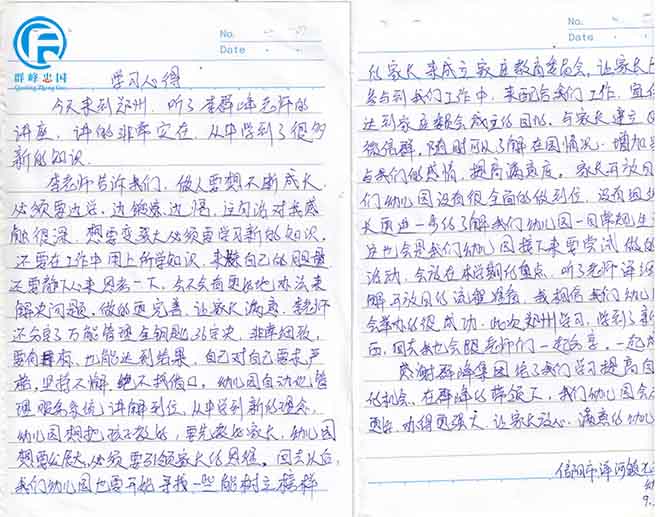 群峰忠国
Qunfeng Zhong Guo
No.
Date
学习心得
今天来到郑州，听了李群峰老师的
讲座，讲的非常实在，从中学到了很多
新的知识。
李老师告诉我们，做人要想不断成长，
必须要边学、边锻炼、边悟，这句话对我感
触很深，想要变强大必须要学习新的知识，
还要在工作中用上所学知识，来
自己的
还要静下心来思考一下，会不会有更好地办法来
解决问题，做的更完善，让家长满意，李老师
还分享了万能管理金钥匙36字决，非常细致，
要有目标，也能达到结果，自己对自己要求严
格，坚持不懈，绝不找借口，幼儿园自动化管
理服务系统讲解到位，从中学到新的理念，
幼儿园想把孩子教好，要先教好家长，幼儿园
想要发展大必须要引领家长的思维。回去以后，
我们幼儿园也要开始寻找一些能树立榜样
No.
Date
的家长来成立家庭教育委员会，让家长
参与到我们工作中，来配合我们工作，
达到家庭教会成立的目的，与家长建立
微信群，随时可以了解在园情况，增加
与我们的感情，提高满意度。家长开放日
们幼儿园没有很全面的做到位，没有
长更进一步的了解我们幼儿园一日常规
这也会是我们幼儿园接下来要尝试做的
活动，会放在本学期的重点，听了老师详细
解开放日的流程准备，我相信我们幼儿
会举办的很成功，此次郑州学习，学到了
西，回去我也会跟老师们一起分享，一起
感谢群峰集团给了我们学习提高自
的机会，在群峰的带领下，我们幼儿园会
更好，办得更强大，让家长放心、满意的幼
信阳市浉河
9.